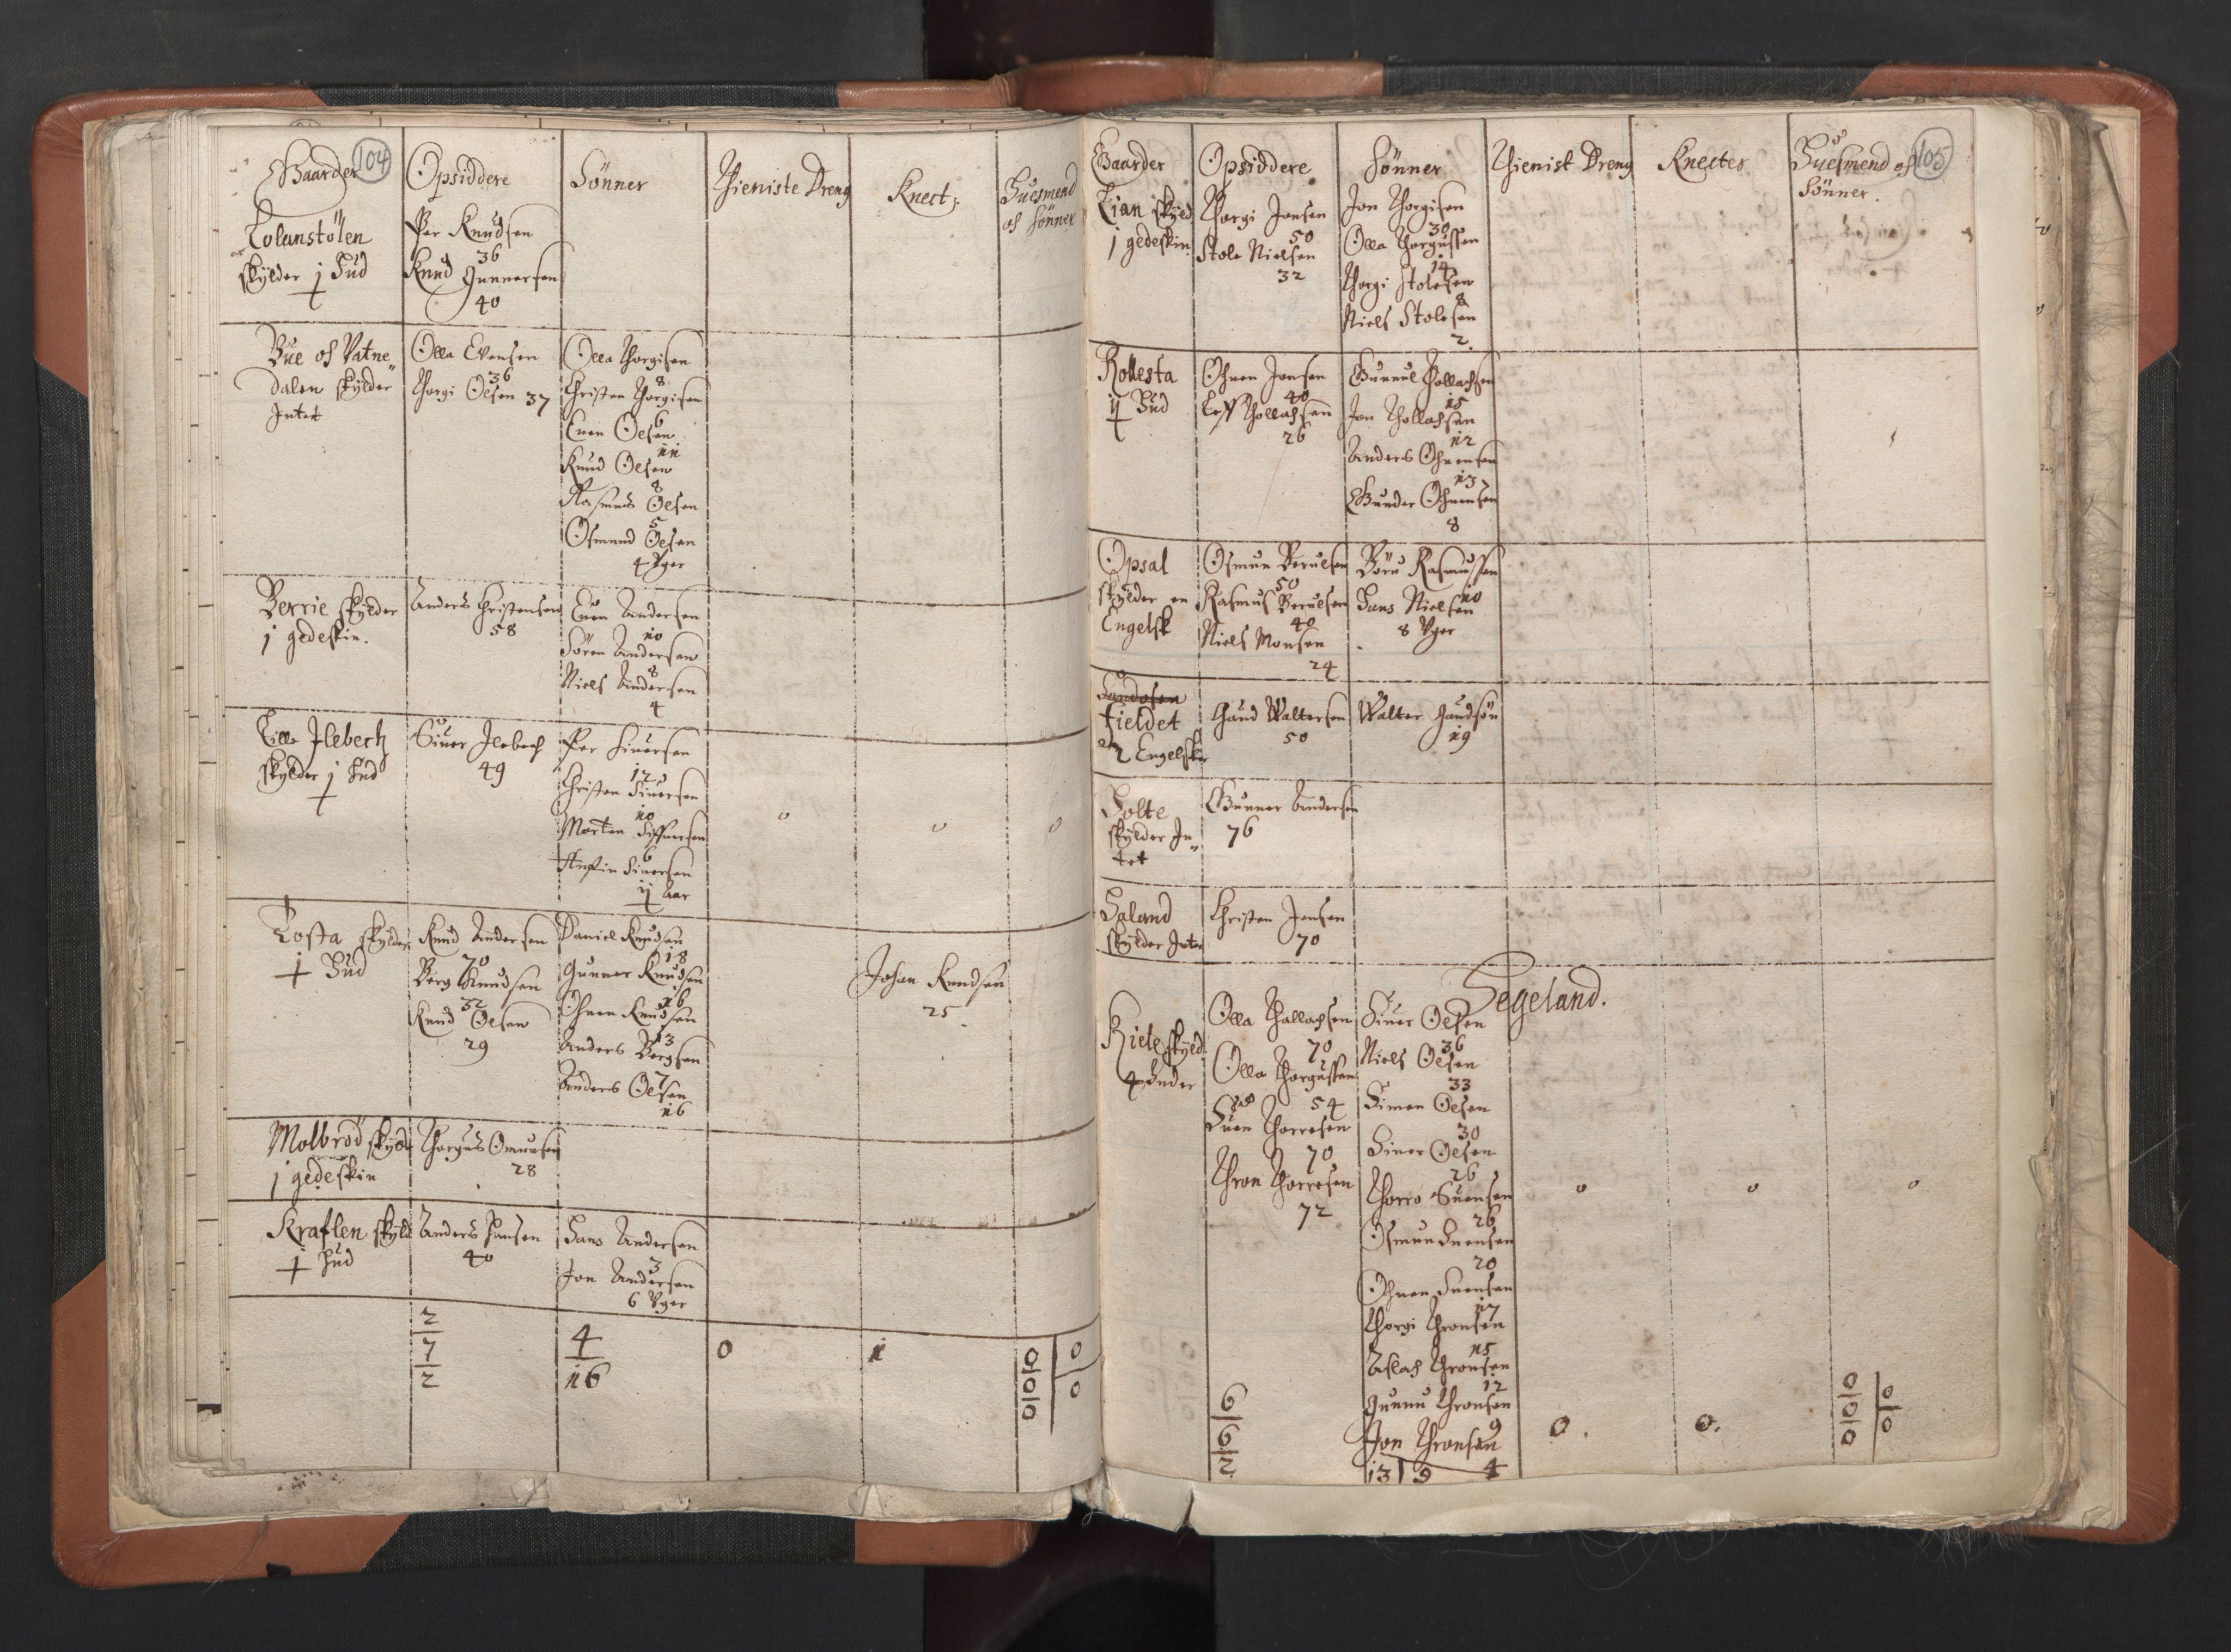 104
Gaarder
Opsiddere
Sönner
Thieniste Dreng
Knect:
Huesmend
oc Sönner
Tolanstölen
skylder j Hud
Per Knudsen
36
Knud Gunnersen
40
Bue oc Vatne
dalen skylder
Intet
Olla Evensen
36
Thorgi Olsen 37
Olla Thorgisen
8
Christen Thorgisen
6
Euen Olsen
11
Knud Olsen
8
Rasmus Olsen
5
Osmund Olsen
4 Vger
Berrie skylder
j gedeskin.
Anders Christensen
58
Euen Andersen
10
Sören Andersen
8
Niels Andersen
4
Lille Ilebech
skylder j Hud
Siuer Ilebech
49
Per Siuersen
12
Christen Siuersen
10
Morten Siffuersen
6
Anfin Siuersen
ij Aar
0
0
0
Tofta skylder
j Hud
Knud Andersen
70
Berg Knudsen
32
Knud Olsen
29
Daniel Knudsen
18
Gunner Knudsen
16
Ohnen Knudsen
13
Anders Bergsen
7
Anders Olsen
16
Johan Knudsen
25
Molbröd skyld
j gedeskin
Thorgus Omunsen
28
Kraflen skyld
j Hud
Anders Hansen
40
Hans Andersen
3
Jon Andersen
6 Vger
2
7
2
4
16
0
1
0
0
0
0
0
105
Gaarder
Opsiddere
Sönner
Thienist Dreng
Knecter
Huesmend oc
Sönner.
Lian skyld
j gedeskin
Thorgi Jonsen
50
Stole Nielsen
32
Jon Thorgisen
30
Olla Thorgussen
14
Thorgi Stolesen
8
Niels Stolesen
2.
Rollesta
ij Hud
Ohnen Jonsen
40
Leff Thollachsen
26
Gunnul Thollachsen
15
Jon Thollachsen
12
Anders Ohnensen
13
Gunder Ohnensen
8
Opsal
skylder en
Engelsk
Osmun Berulsen
50
Rasmus Berulsen
40
Niels Monsen
24
Böru Rasmussen
10
Hans Nielsen
8 Vger
fieldet
2 Engelsk
Gaud Waltersen
50
Walter Gaudsön
19
Holte
skylder In
tet
Gunner Andersen
76
Haland
skylder Intet
Christen Jensen
70
Segeland.
Kiele skyld
4 huder
Olla Thallachsen
70
Olla Thorgussen
54
Suen Thorresen
70
Thron Thorresen
72
Siuer Olsen
36
Niels Olsen
33
Simen Olsen
30
Siuer Olsen
26
Thorro Suensen
26
Osmun Suensen
20
Ohnen Suensen
17
Thorgi Thronsen
15
Aslach Thronsen
12
Gunnu Thronsen
9
Jon Thronsen
4
0
0
0
6
6
2
13 9
0
0.
0
0
0
0
0